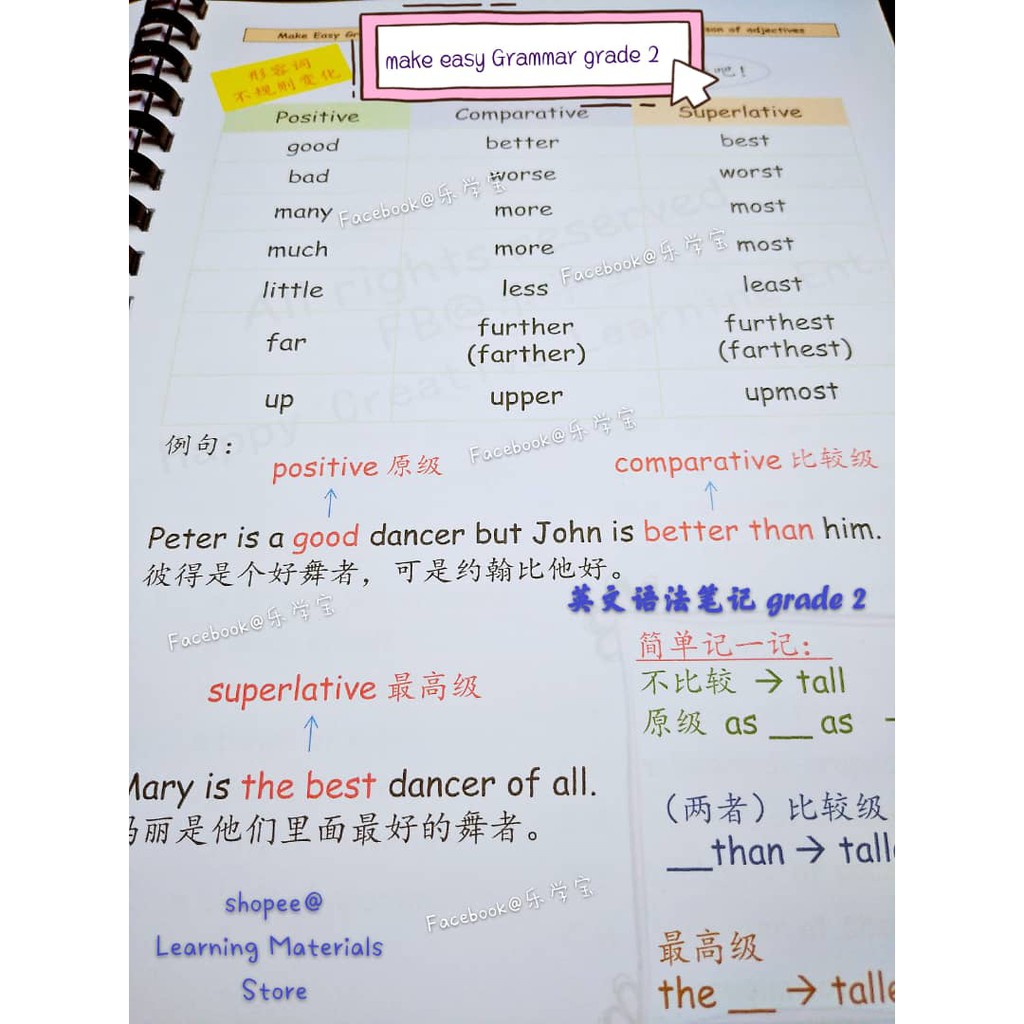 Make Easy Gr
son of adjectives
make easy Grammar grade 2
形容词
不规则变化
吧！
Positive Comparative Superlative
good better best
bad worse worst
many more most
much more most
little less least
far further (farther) furthest (farthest)
up upper upmost
Facebook@乐学宝
Facebook@乐学宝
All rights reserved
Facebook@乐学宝
例句：
positive 原级
comparative 比较级
Peter is a good dancer but John is better than him.
彼得是个好舞者，可是约翰比他好。
英文语法笔记 grade 2
Facebook@乐学宝
简单记一记：
不比较 → tall
原级 as __ as
superlative 最高级
Mary is the best dancer of all.
玛丽是他们里面最好的舞者。
（两者）比较级
__than → talle
shopee@
Learning Materials
Store
Facebook@乐学宝
最高级
the __ → talle